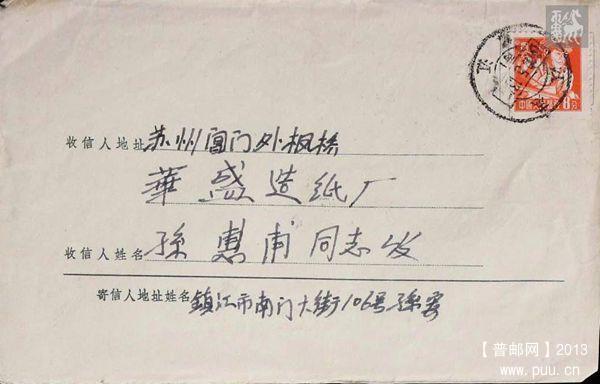 收信人地址 苏州阊门外枫桥
華盛造纸厂
收信人姓名 孫惠甫同志收
寄信人地址姓名 鎮江市南门大街106号孫寄
8分
【普邮网】2013
www.puu.cn